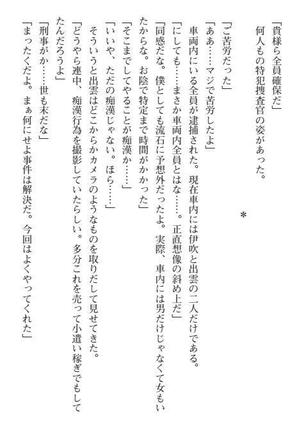 「貴様ら全員確保だ」
何人もの特犯捜査官の姿があった。
＊
「ご苦労だった」
「ああ……マジで苦労したよ」
車両内にいる全員が逮捕された。現在車内には伊吹と出雲の二人だけである。
「にしても……まさか車両内全員とはな……。正直想像の斜め上だ」
「同感だな。僕としても流石に予想外だったよ。実際、車内には男だけじゃなくて女もい
たからな。お陰で特定まで時間がかかった」
「そこまでしてやることが痴漢か……」
「いいや、ただの痴漢じゃない。ほら……」
そういうと出雲はどこからかカメラのようなものを取りだして見せてきた。
「どうやら連中、痴漢行為を撮影していたらしい。多分これを売って小遣い稼ぎでもして
たんだろうよ」
「刑事がか……世も末だな」
「まったくだよ。まぁ何にせよ事件は解決だ。今回はよくやってくれた」